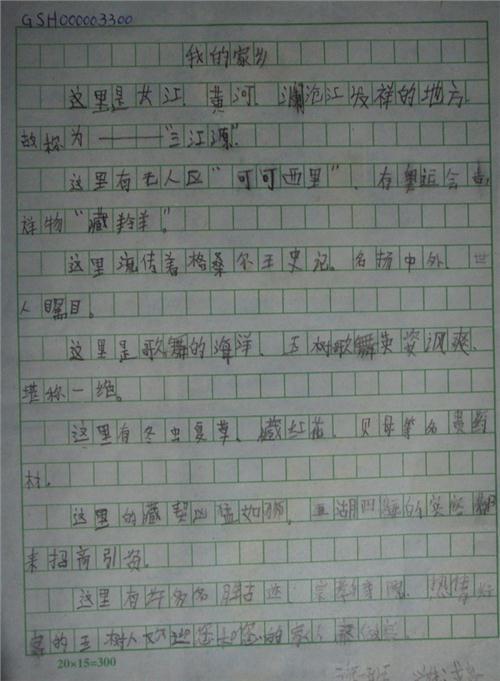 GSH000003300
我的家乡
这里是大江、黄河、澜沧江发祥的地方、
故称为——"三江源".
这里有无人区"可可西里"、有奥运会吉
祥物"藏羚羊"。
这里流传着格桑尔王史记。名扬中外、世
人瞩目。
这里是歌舞的海洋、玉树歌舞英姿飒爽、
堪称一绝。
这里有冬虫夏草、藏红花、贝母等名贵药
材.
这里的藏獒凶猛如狮、五湖四海的
来招商引资。
这里有许多名胜古迹、热情好
客的玉树人欢迎您和您的家人
20×15=300